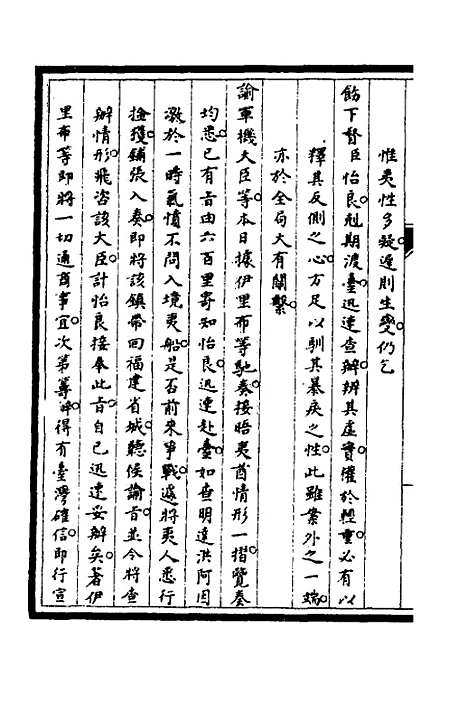 惟夷性多疑遲則生變仍乞
飭下督臣怡良剋期渡臺迅速查辦辨其虛實僅於輕重必有以
釋其反側之心方足以馴其暴戾之性此雖案外之一端
亦於全局大有關繫
諭軍機大臣等本日據伊里布等馳奏接晤夷酋情形一摺覽奏
均悉已有旨由六百里寄知怡良迅速赴臺如查明達洪阿因
激於一時氣憤不問入境夷船是否前來爭戰遽將夷人悉行
擒獲鋪張入奏即將該鎮帶回福建省城聽候諭旨並令將查
辦情形飛咨該大臣計怡良接奉此旨自已迅速妥辦矣著伊
里布等即將一切通商事宜次第籌辦得有臺灣確信即行宣